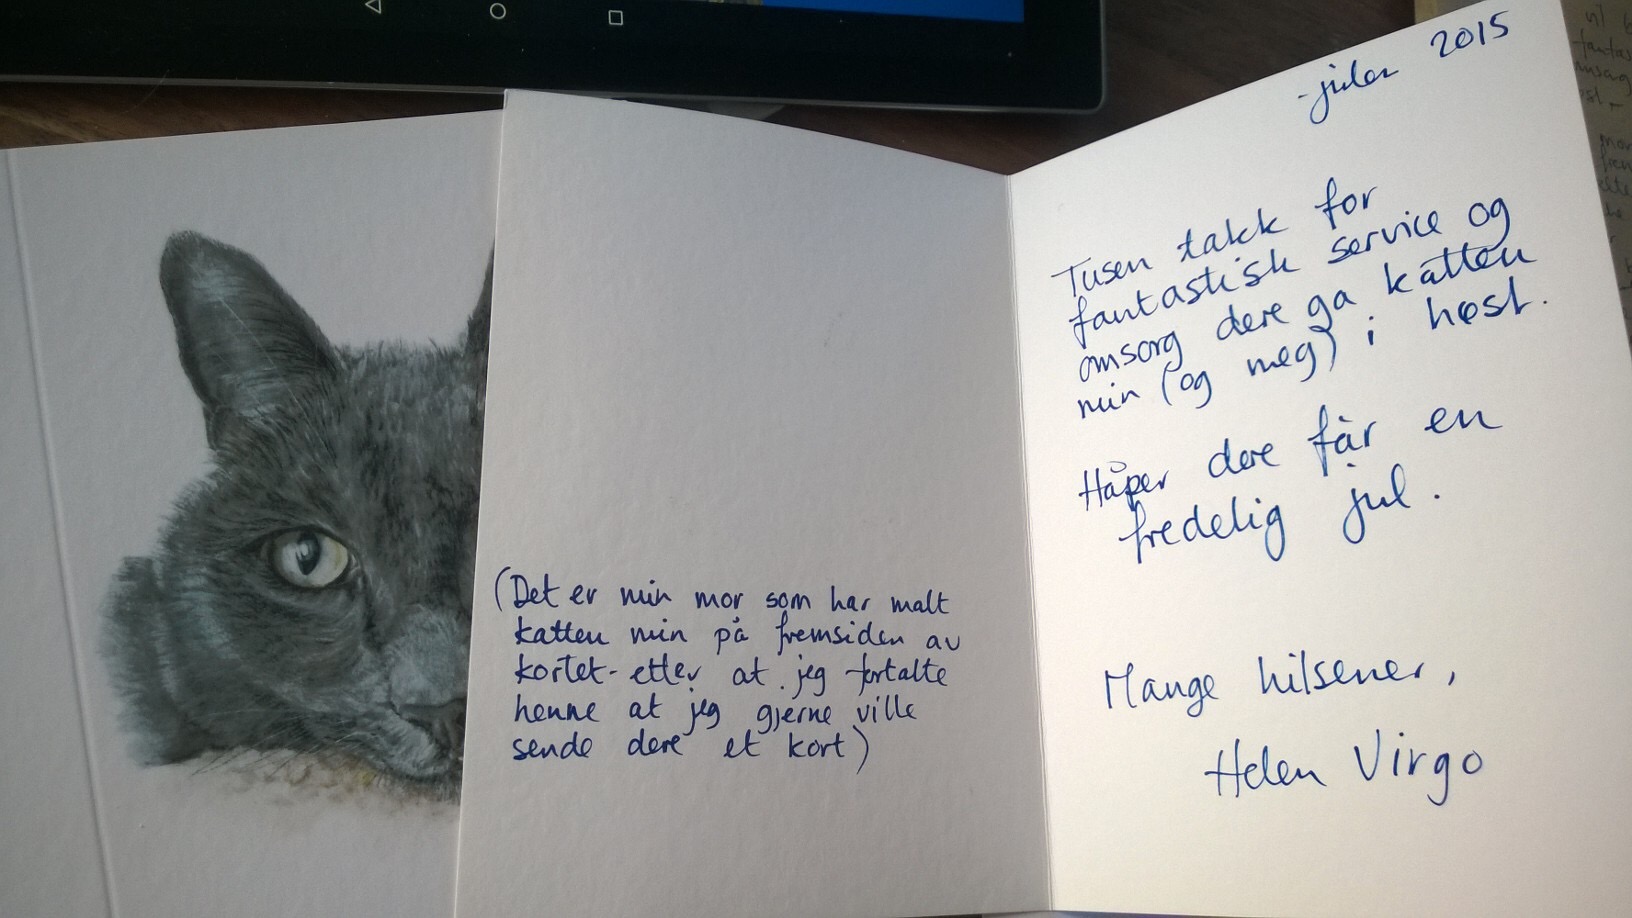 (Det er min mor som har malt
katten min på fremsiden av
kortet - etter at jeg fortalte
henne at jeg gjerne ville
sende dere et kort)
- julen 2015
Tusen takk for
fantastisk service og
omsorg dere ga katten
min (og meg) i høst.
Håper dere får en
fredelig jul.
Mange hilsener,
Helen Virgo